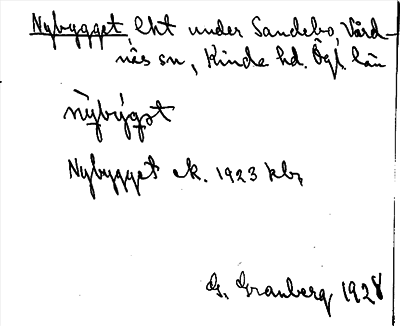 Nybygget lht under Sandebo, Vård-
näs sn, Kinda hd. Ögl. län
nỳbýgət
Nybygget ek. 1923 kbr
G. Granberg 1928